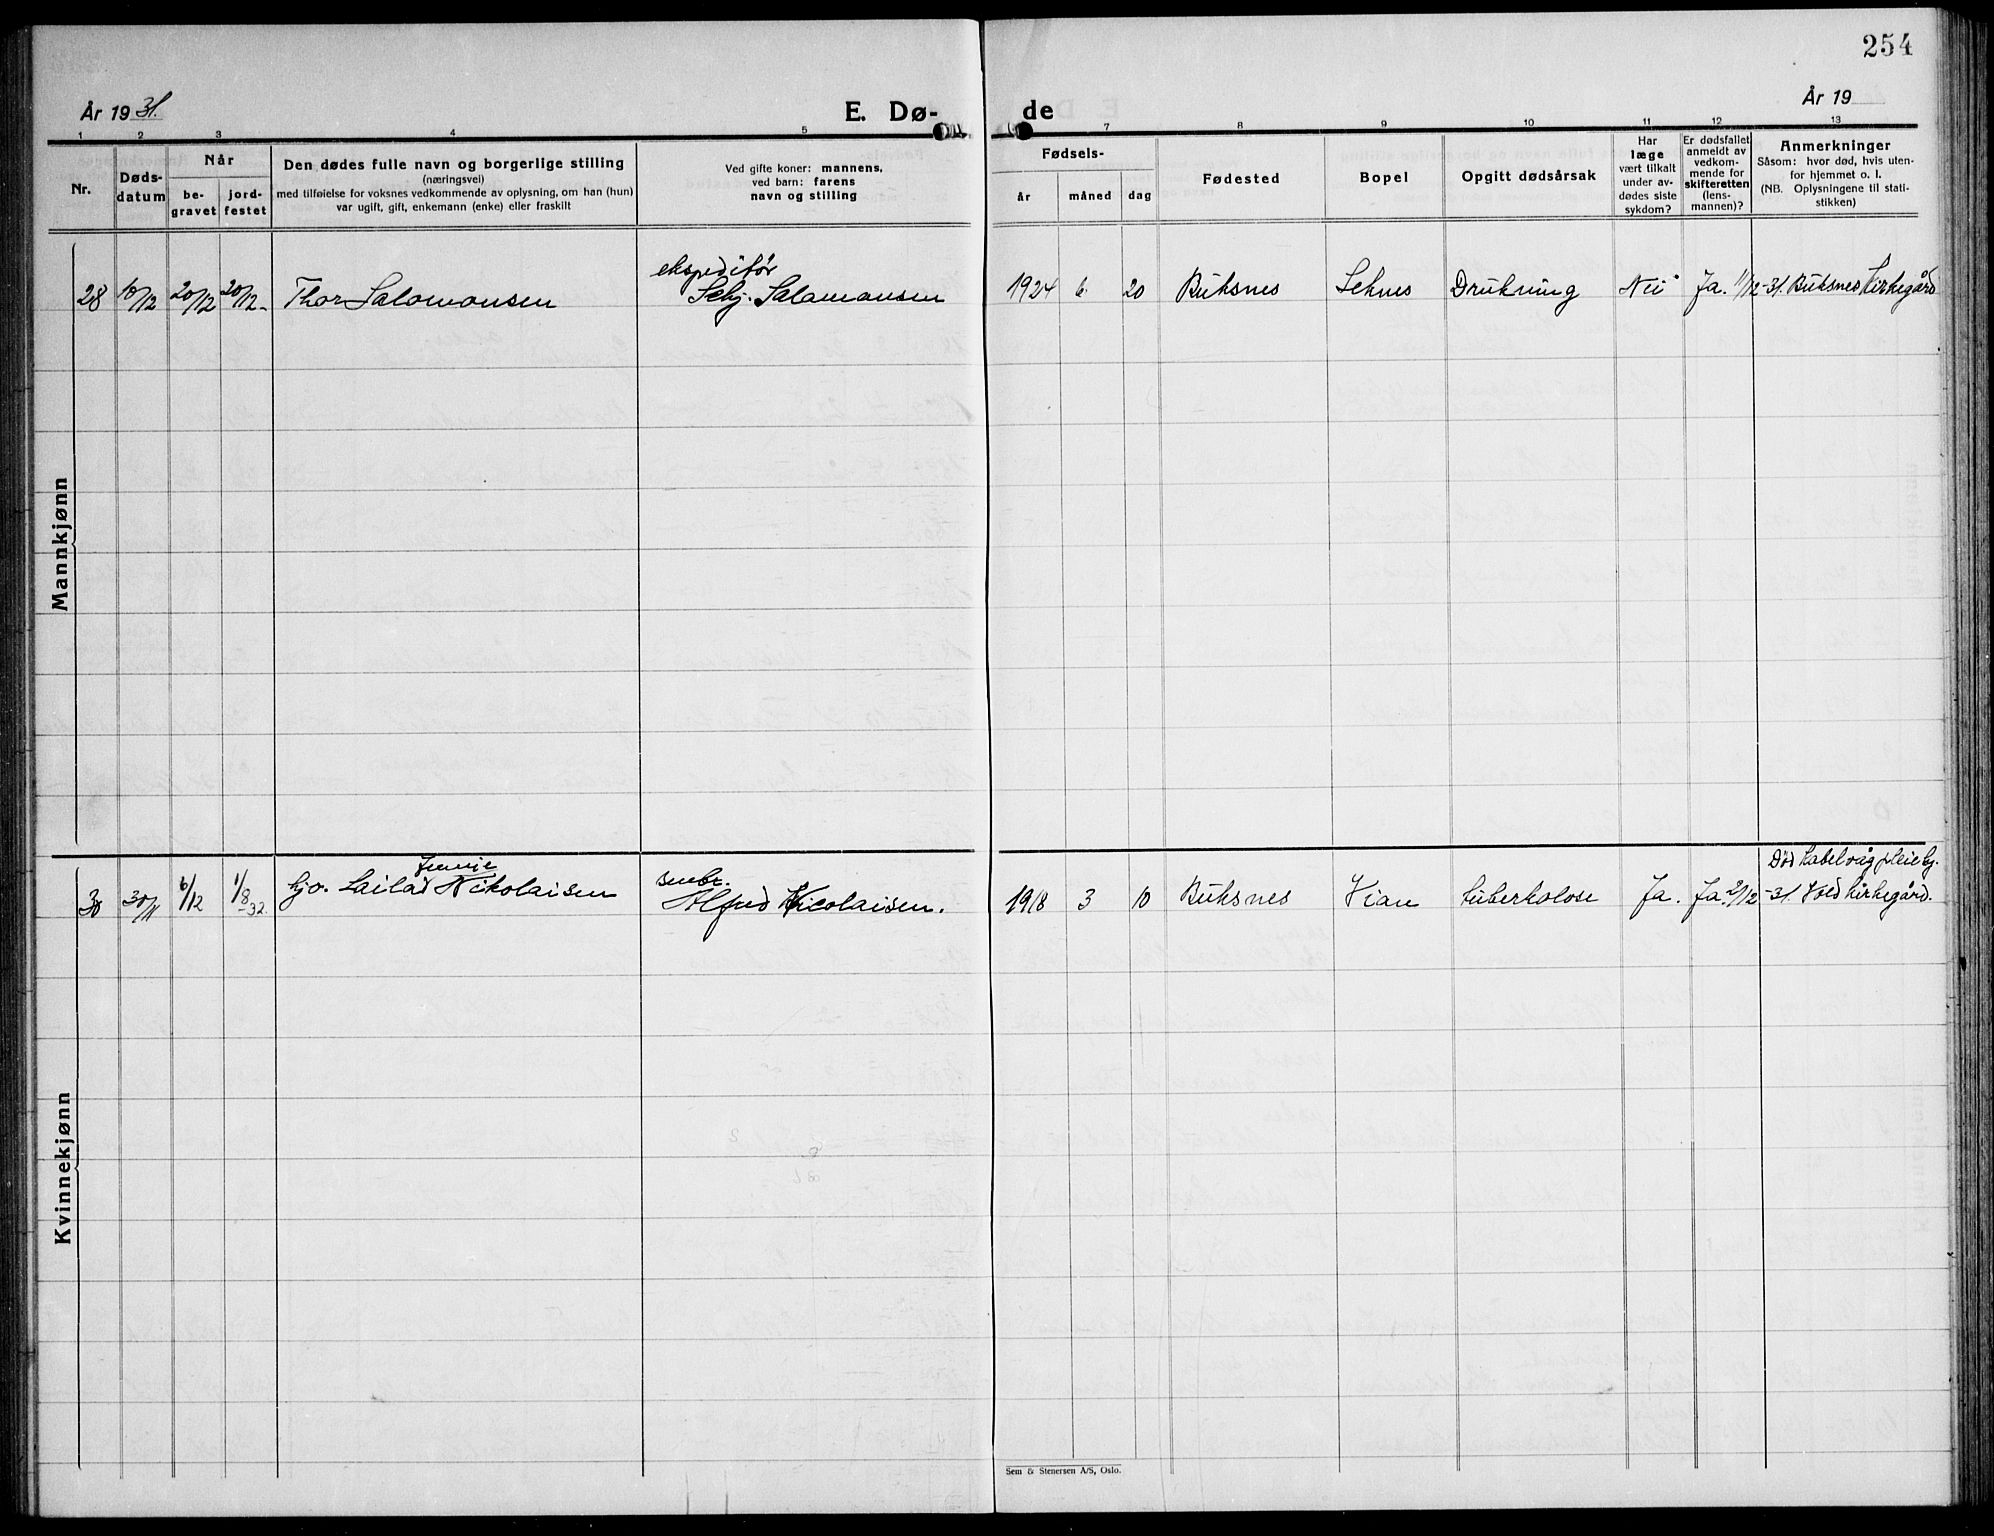 254
År 1931.
E. Dø-
de
År 19
1 2 3 4 5 7 8 9 10 11 12 13
Nr.
Døds-
datum
Når
be-
gravet
jord-
festet
Den dødes fulle navn og borgerlige stilling
(næringsvei)
med tilføielse for voksnes vedkommende av oplysning, om han (hun)
var ugift, gift, enkemann (enke) eller fraskilt
Ved gifte koner: mannens,
ved barn: farens
navn og stilling
Fødsels-
år måned dag
Fødested
Bopel
Opgitt dødsårsak
Har
læge
vært tilkalt
under av-
dødes siste
sykdom?
Er dødsfallet
anmeldt av
vedkom-
mende for
skifteretten
(lens-
mannen)?
Anmerkninger
Såsom: hvor død, hvis uten-
for hjemmet o. l.
(NB. Oplysningene til stati-
stikken)
Mannkjønn
ekspeditør
28 10/12 20/12 20/12- Thor Salomonsen Salamonsen 1924 6 20 Buksnes Drukning Nei Ja. 11/12-31. Buksnes Kirkegård
Kvinnekjønn
Jennie
30 30/11 6/12 1/8-32. Laila Nikolaisen
Alfred Nicolaisen. 1918 3 10 Buksnes tuberkolose Ja. Ja. 2/12-31.
Død Kabelvåg pleiehj.
Kirkegård.
Sem & Stenersen A/S, Oslo.